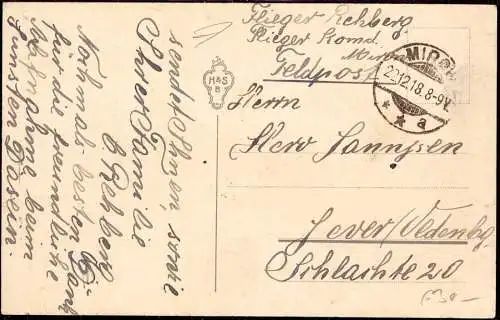 Flieger Rehberg
Flieger Komd.
Mirow
Feldpost
MIROW
22.12.18. 8-9V.
* * a
H&S
B
Herrn
Herr Janssen
Jever/Oldenbg
Schlachte 20
sendet Ihnen, sowie
Ihrer Familie
B Rehberg
Nochmals besten Dank
für die freundliche
Aufnahme beim
Dasein.